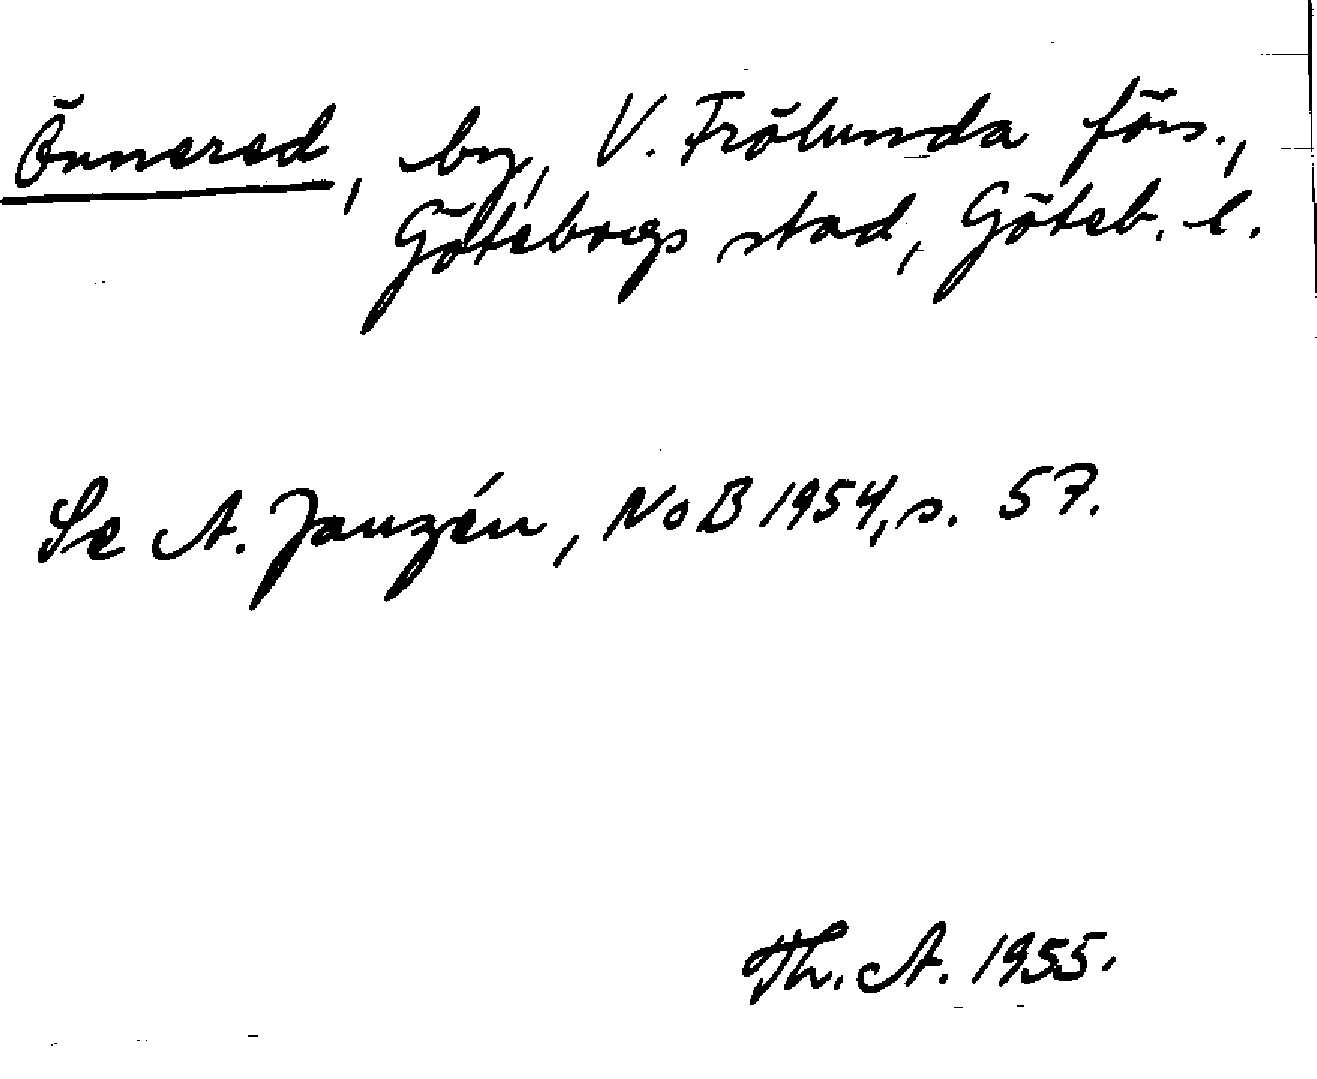 Önnered, by, V. Frölunda förs.,
Göteborgs stad, Göteb. l.
Se A. Janzén, NoB 1954, s. 57.
Th. A. 1955.